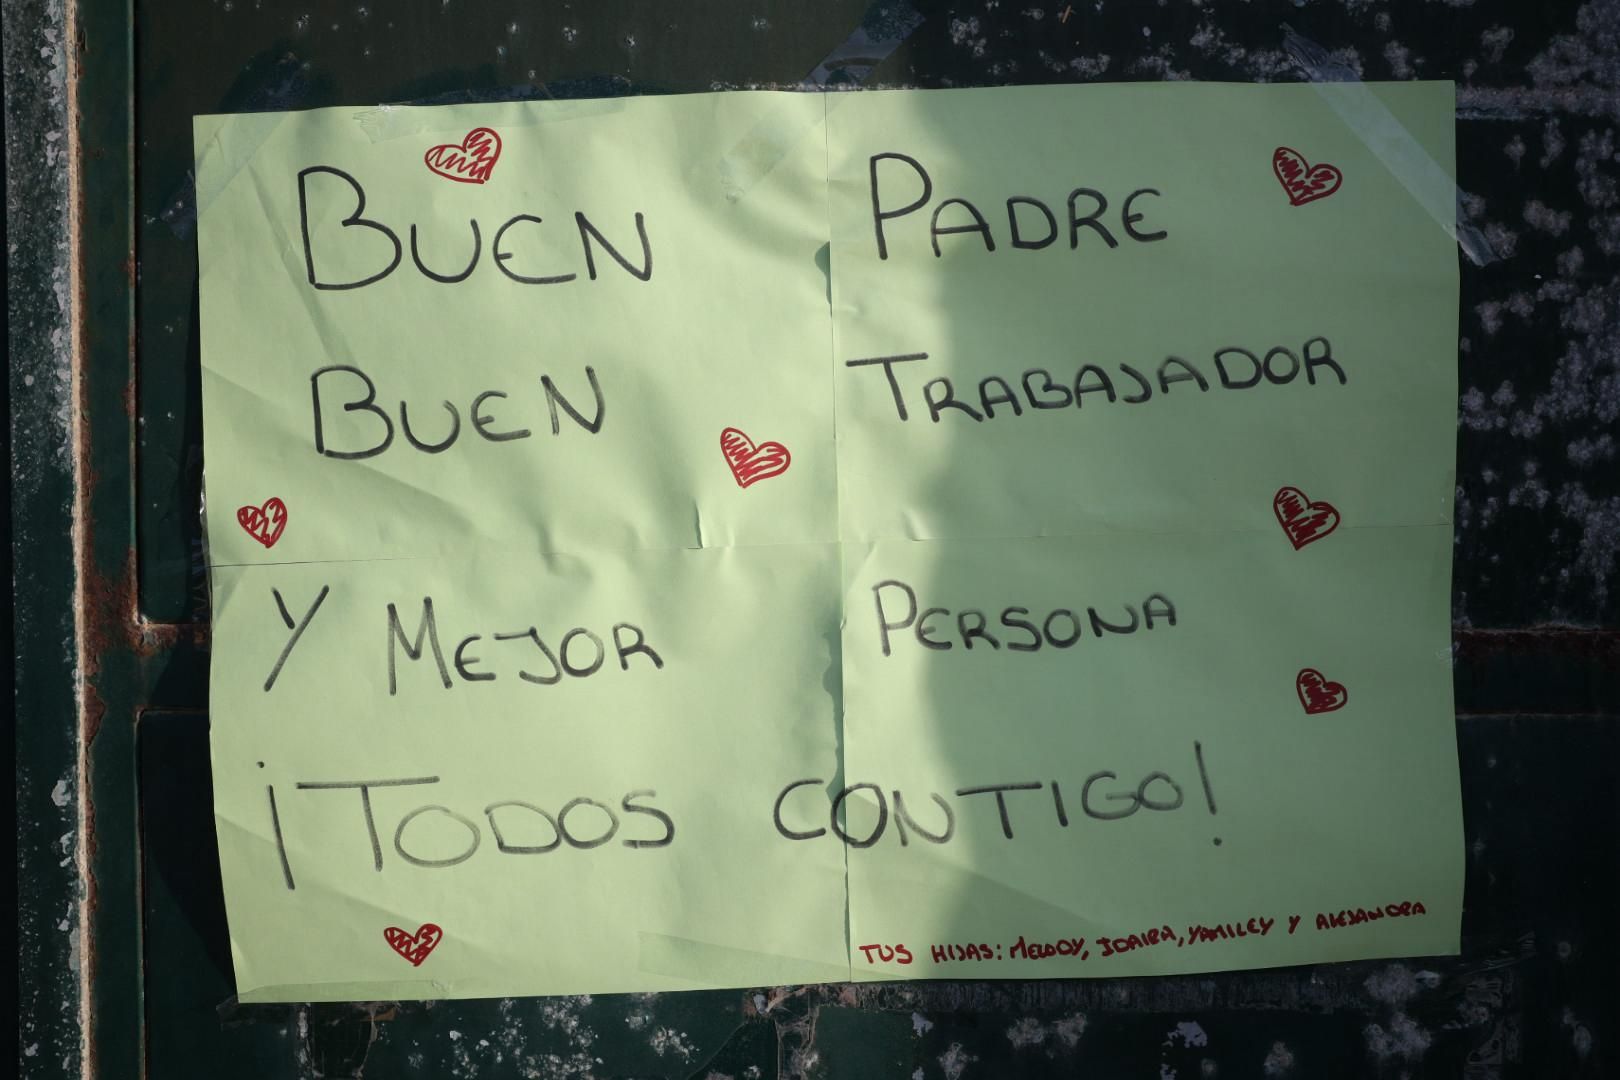 BUEN PADRE
BUEN TRABAJADOR
Y MEJOR PERSONA
¡TODOS CONTIGO!
TUS HIJAS: MELODY, JOAIRA, YAMILEY Y ALEJANDRA